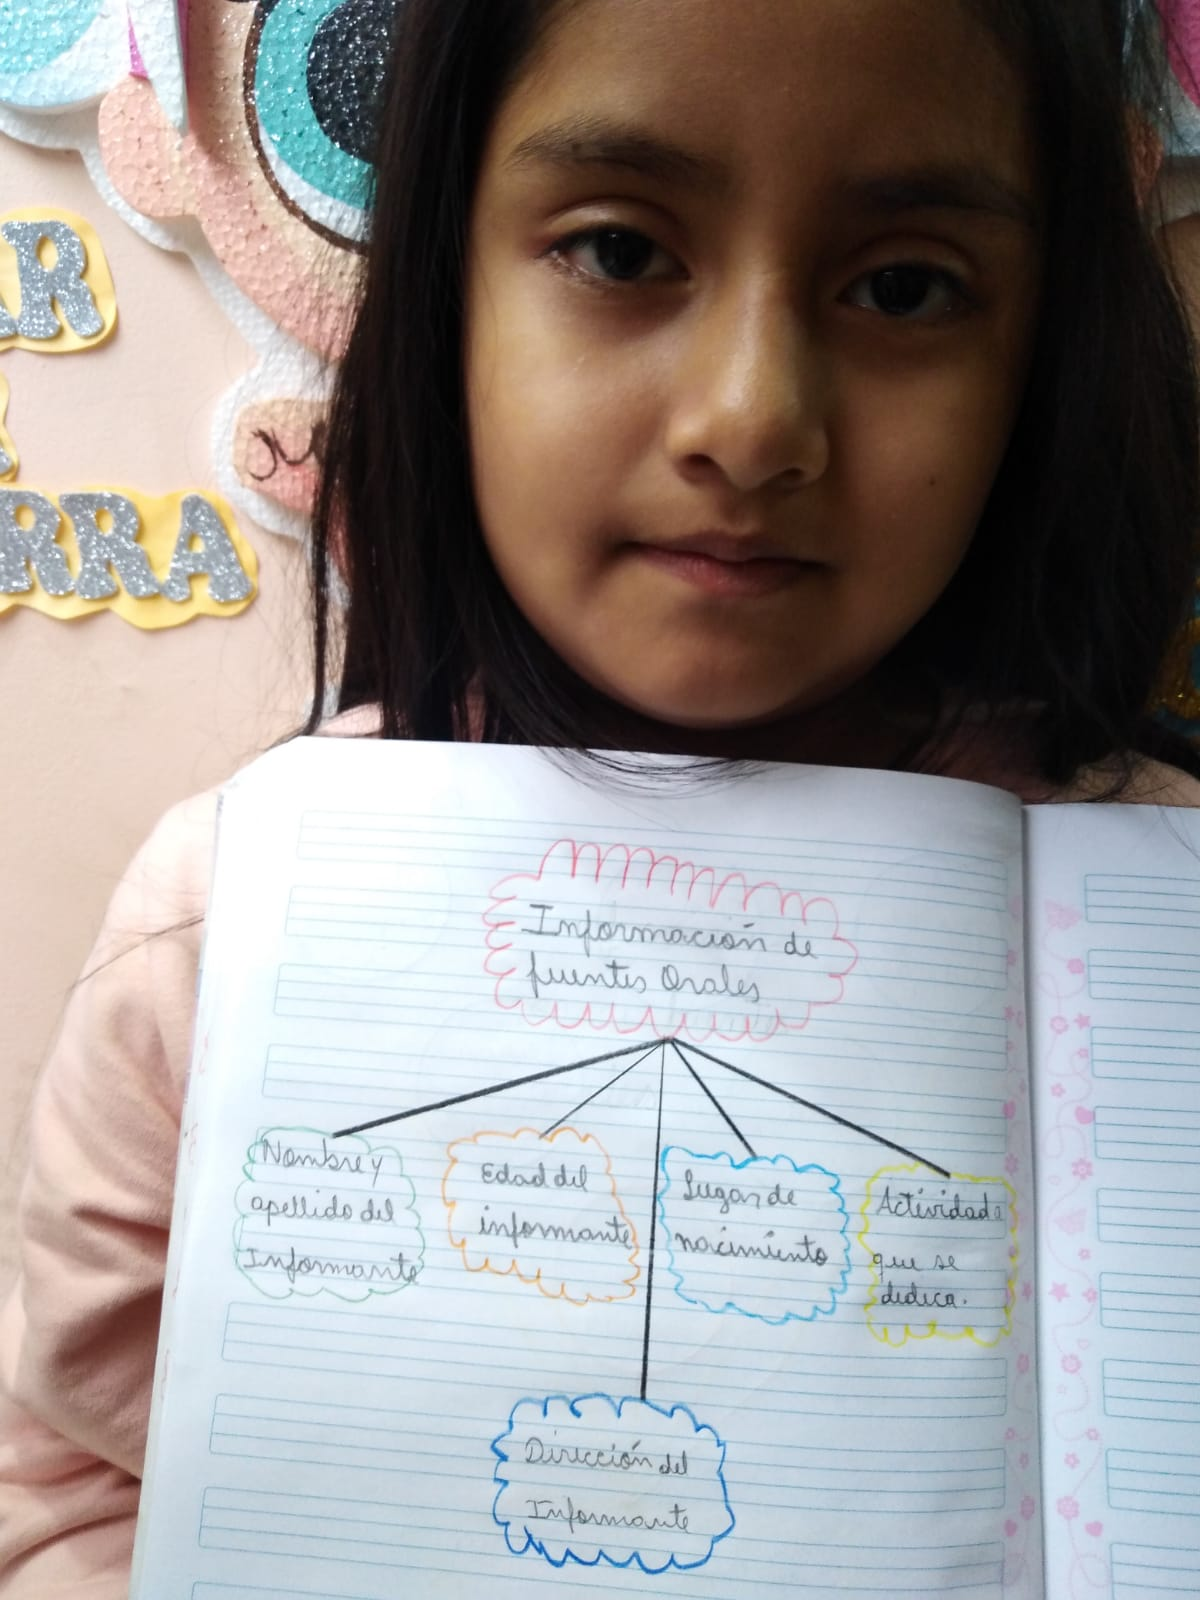 AR
RRA
Información de
fuentes Orales
Nombre y
apellido del
Informante
Edad del
informante
Lugar de
nacimiento
Actividad a
que se
dedica.
Dirección del
Informante